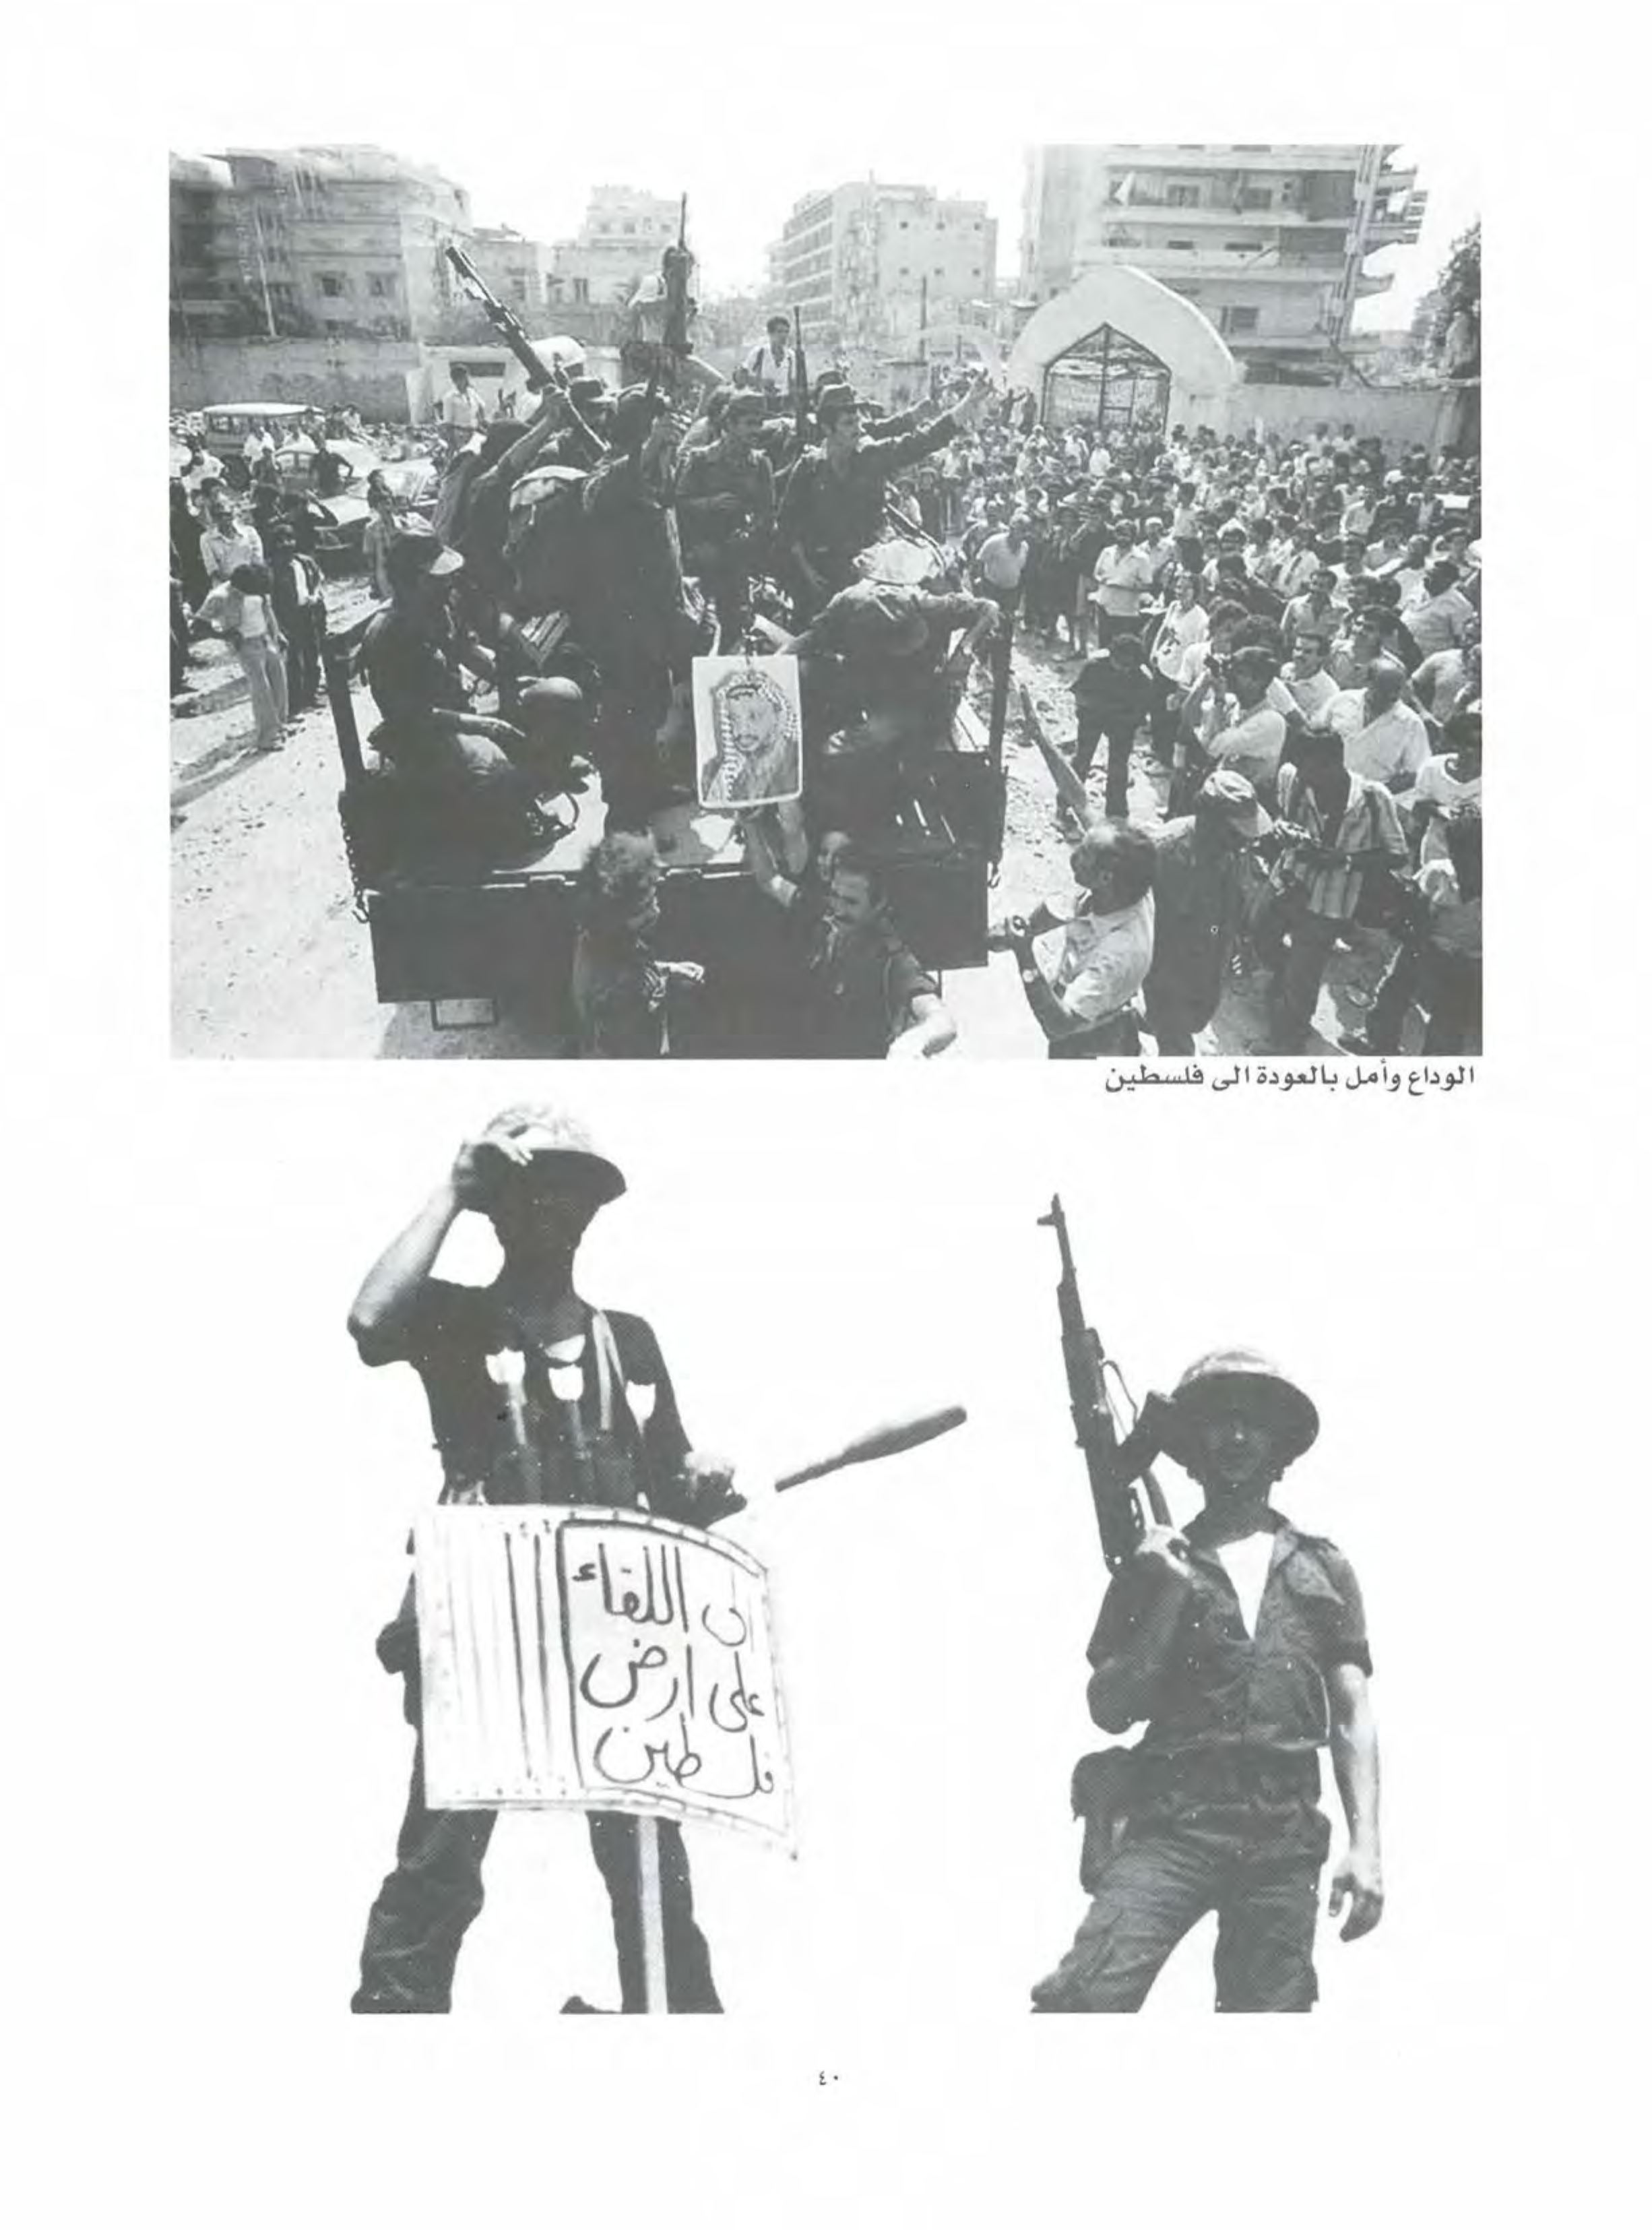 الوداع وأمل بالعودة الى فلسطين
الى اللقاء
على ارض
فلسطين
٤٠